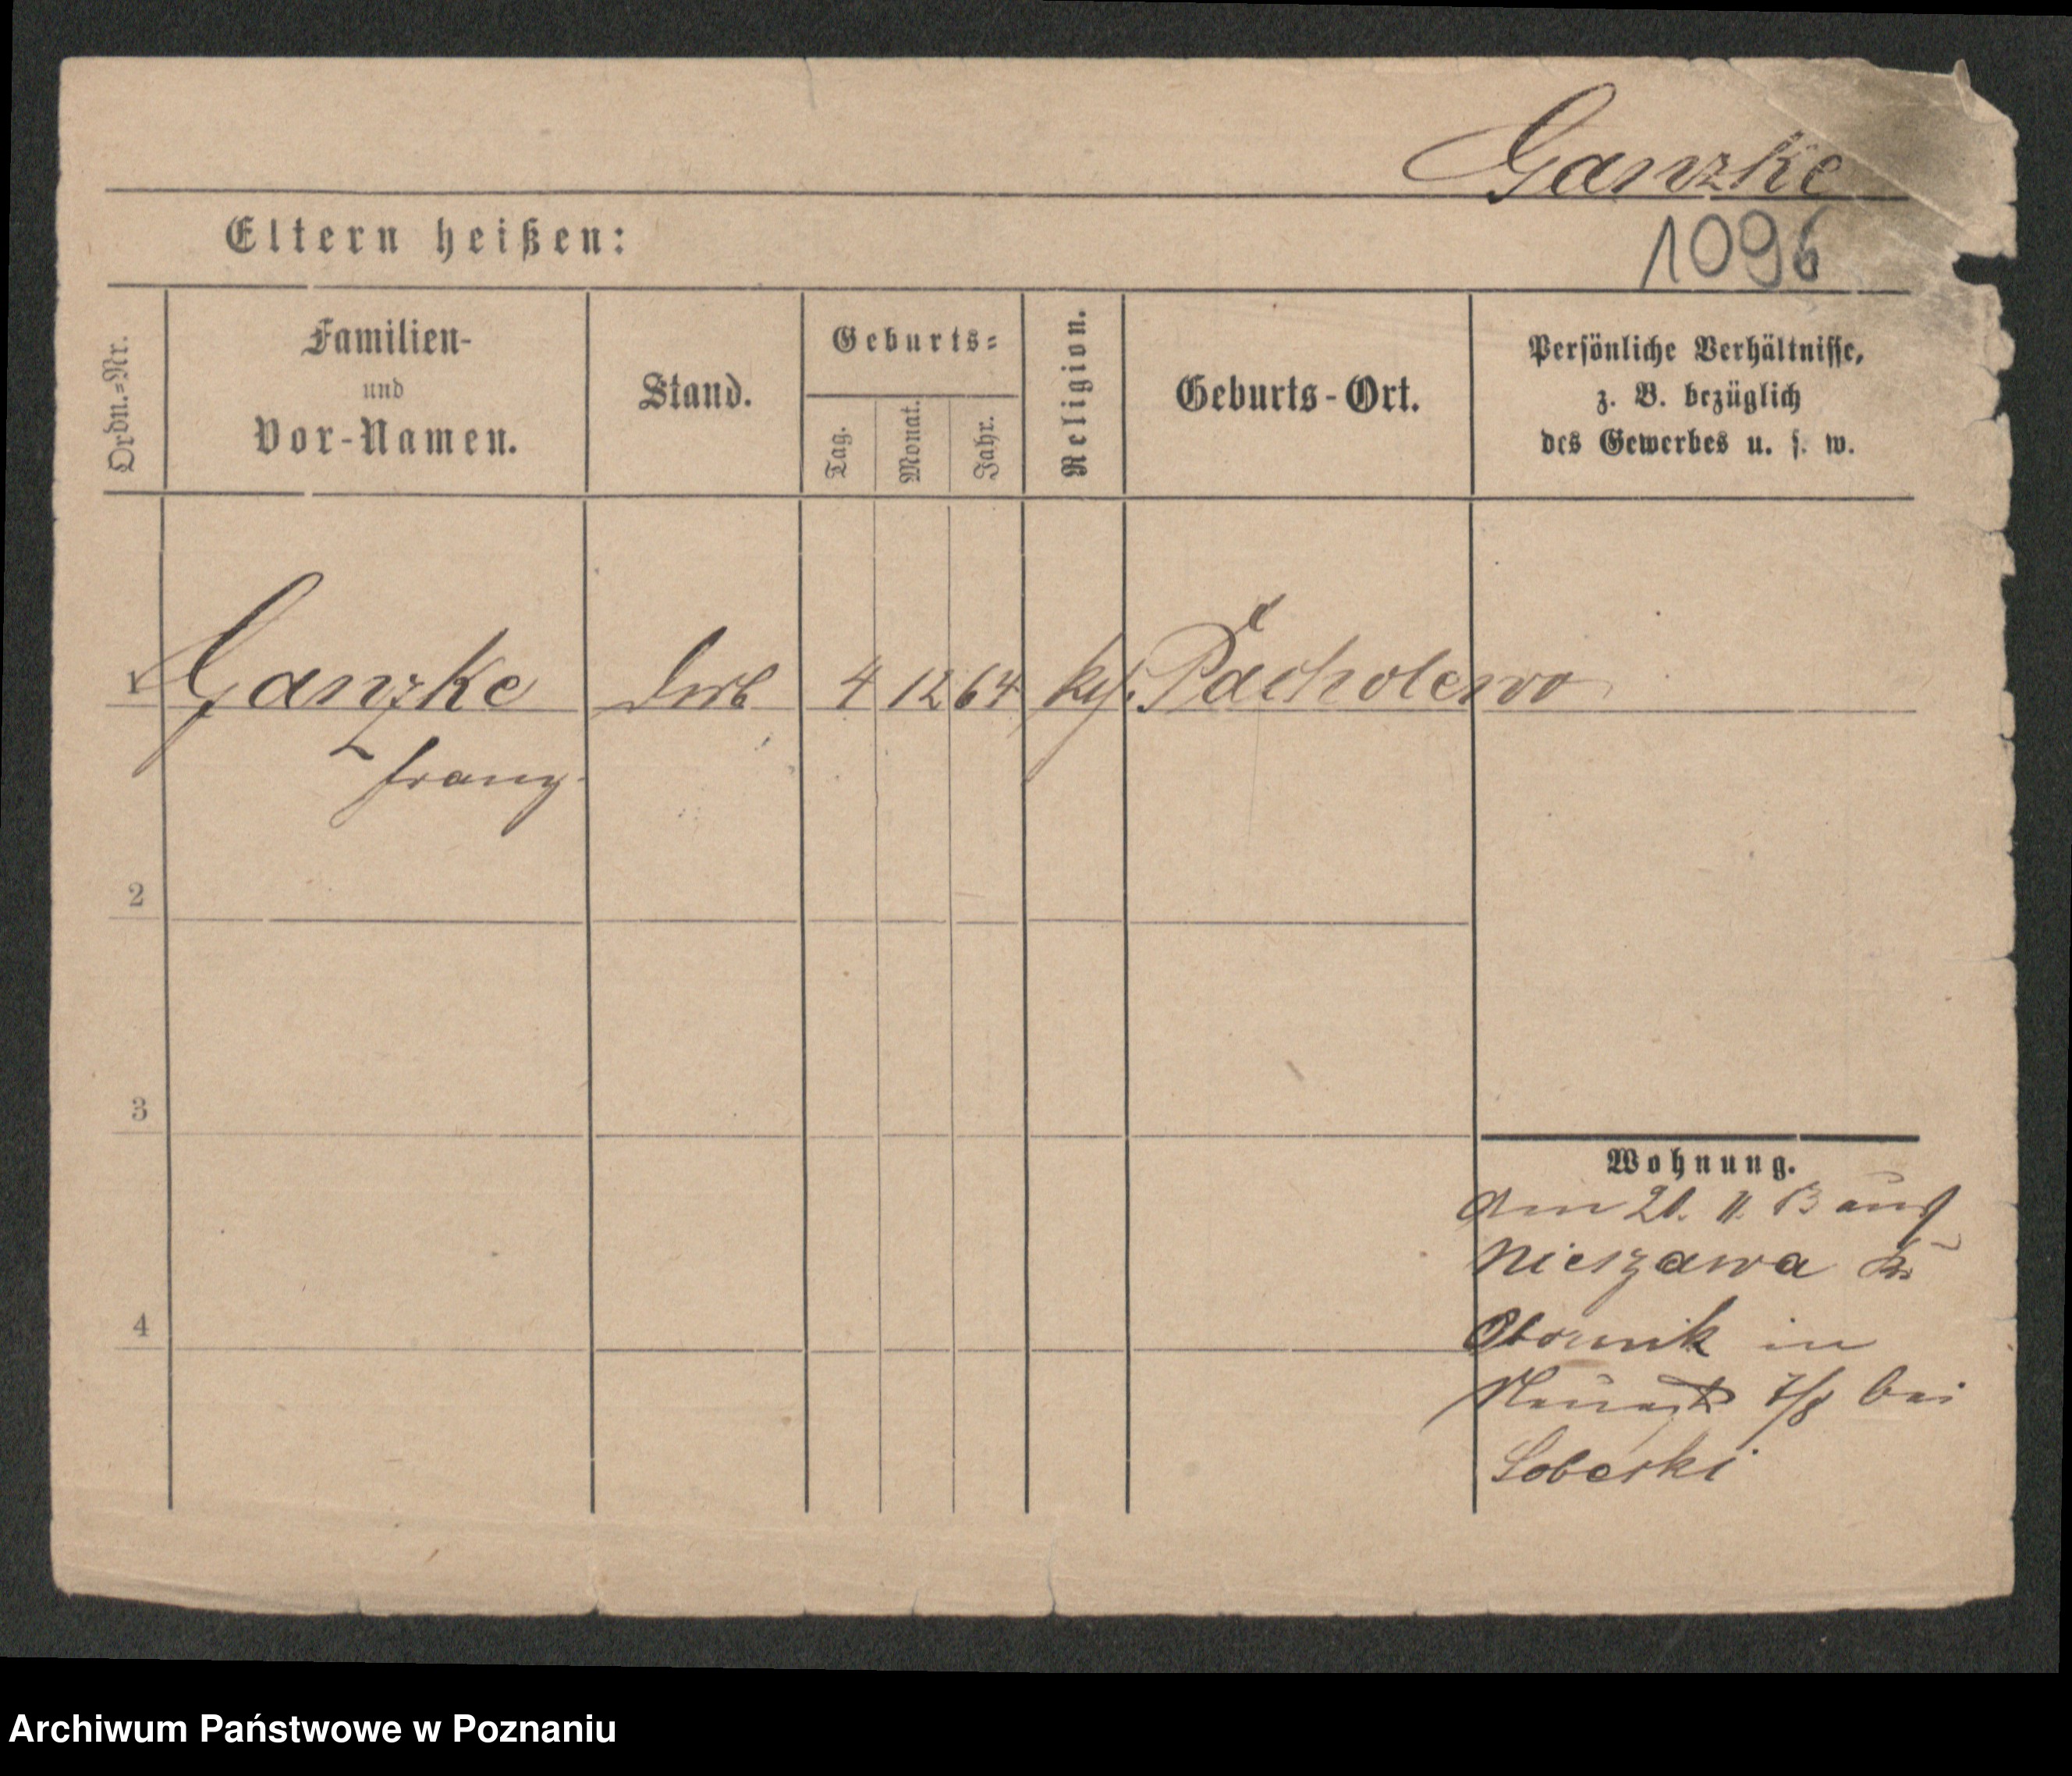 Ganzke
Eltern heißen:
1096
Ordn.=Nr.
Familien-
und
Vor-Namen.
Stand.
Geburts=
Tag.
Monat.
Jahr.
Religion.
Geburts-Ort.
Persönliche Verhältnisse,
z. B. bezüglich
des Gewerbes u. s. w.
1 Ganzke 4 12 64 Pacholewo
Franz
2
3
Wohnung.
aus
Nieszawa Kr
4
Obornik in
7/8 bei
Soberski
Archiwum Państwowe w Poznaniu